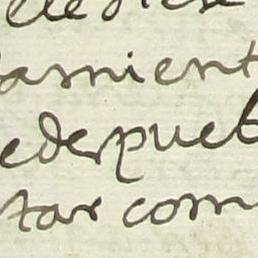 amient
ederpueb
tar com